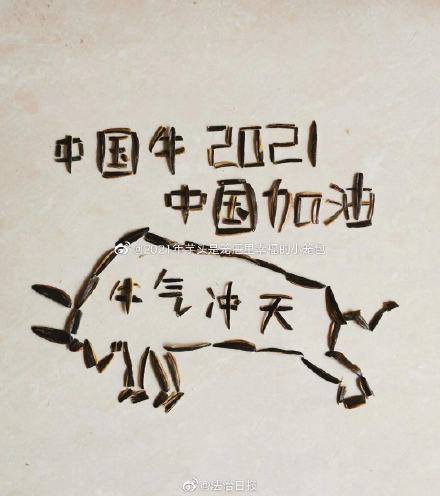 中国牛 2021
中国加油
@2021年芋头是笼包里幸福的小笼包
牛气冲天
@法治日报